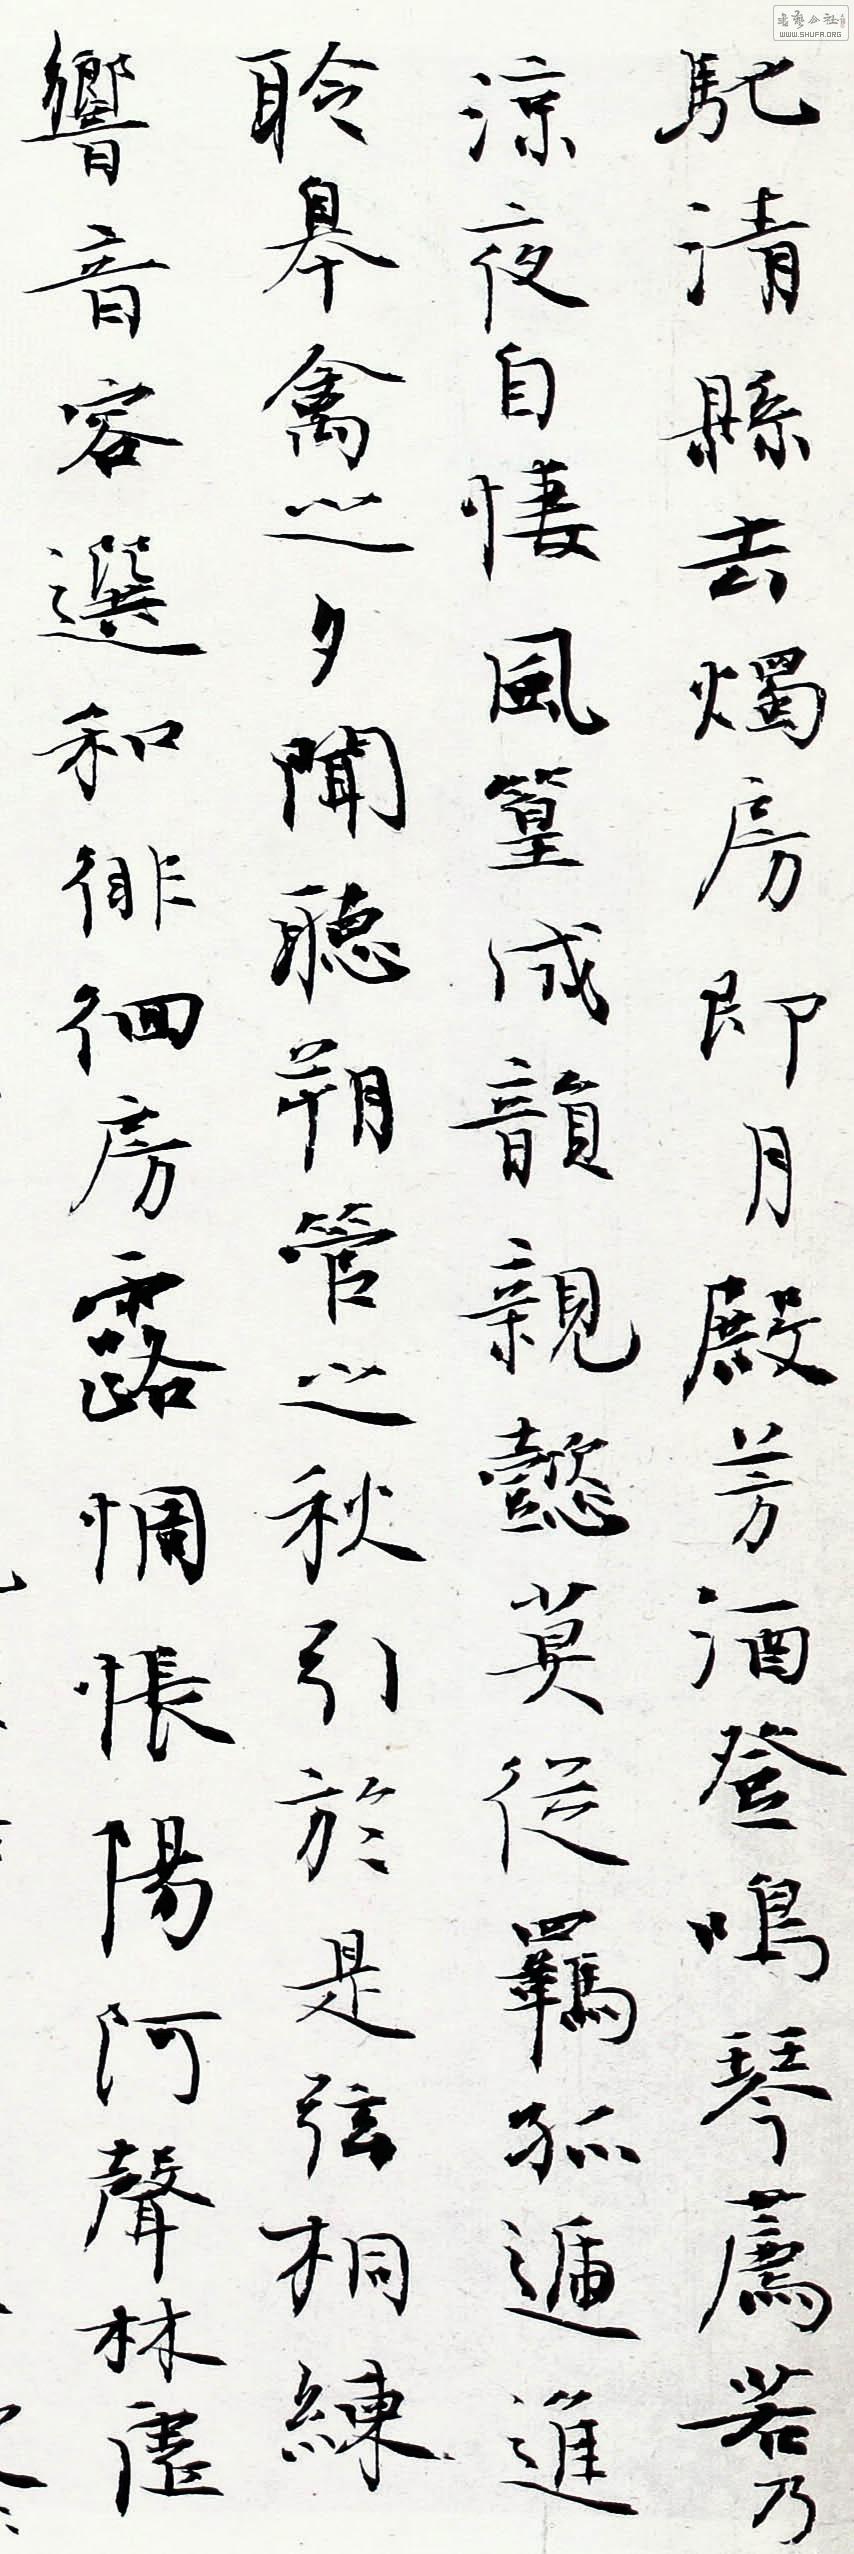 馳清縣去燭房即月殿芳酒登鳴琴薦若乃
涼夜自悽風篁成韻親懿莫從羈孤遞進
聆皋禽之夕聞聽朔管之秋引於是弦桐練
響音容選和徘徊房露惆悵陽阿聲林虛
WWW.SHUFA.ORG